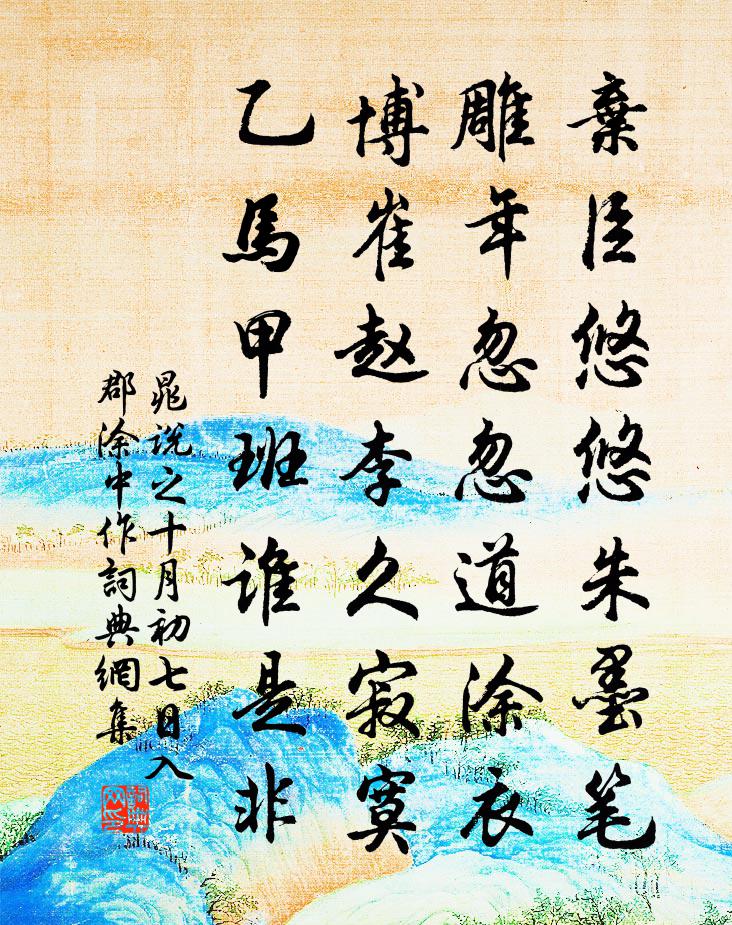 棄臣悠悠朱墨笔
雕年忽忽道涂衣
博崔赵李久寂寞
乙馬甲班谁是非
晁说之十月初七日入
郡涂中作詞典網集